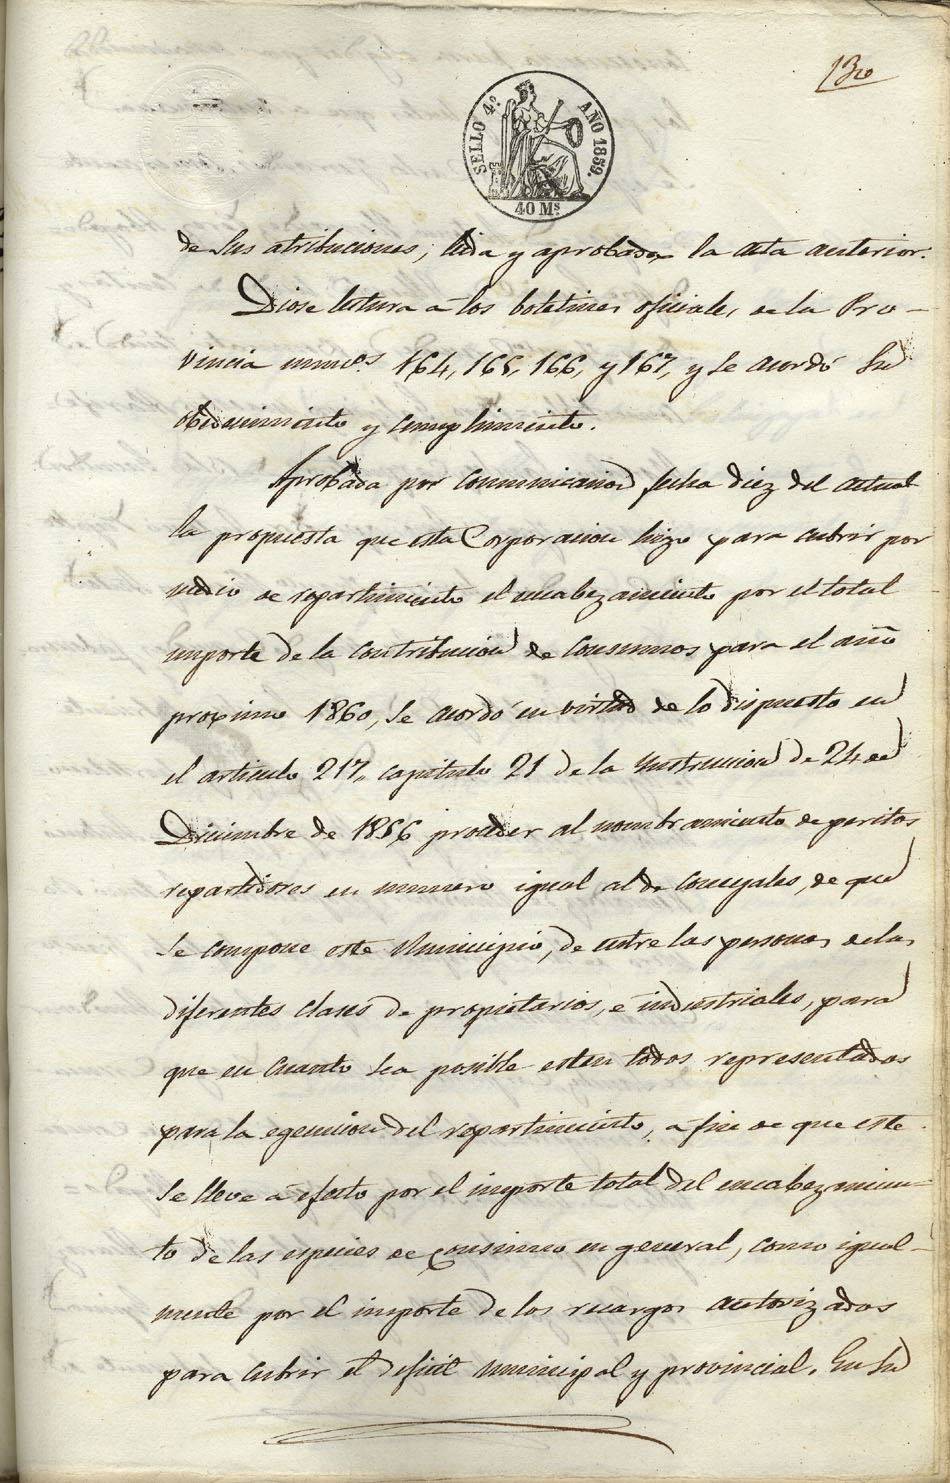 130
SELLO 4º AÑO 1859.
40 Ms
de sus atribuciones, leida y aprobada la acta anterior.
Diose lectura a los boletines oficiales de la Pro-
vincia numos. 164, 165, 166, y 167, y se acordó su
obedecimiento y cumplimiento.
Aprobada por comunicacion fecha diez del actual
la propuesta que esta Corporacion hizo para cubrir por
medio de repartimiento el encabezamiento por el total
importe de la contribucion de consumos para el año
proximo 1860, se acordó en virtud de lo dispuesto en
el articulo 217,, capitulo 21 de la Instruccion de 24 de
Diciembre de 1856 proceder al nombramiento de peritos
repartidores en numero igual al de concejales, de que
se compone este Municipio, de entre las personas de las
diferentes clases de propietarios, e industriales, para
que en cuanto sea posible esten todos representados
para la egecucion del repartimiento, a fin de que este
se lleve a efecto por el importe total del encabezamien-
to de las especies de consumo en general, como igual-
mente por el importe de los recargos autorizados
para cubrir el deficit municipal y provincial. En su